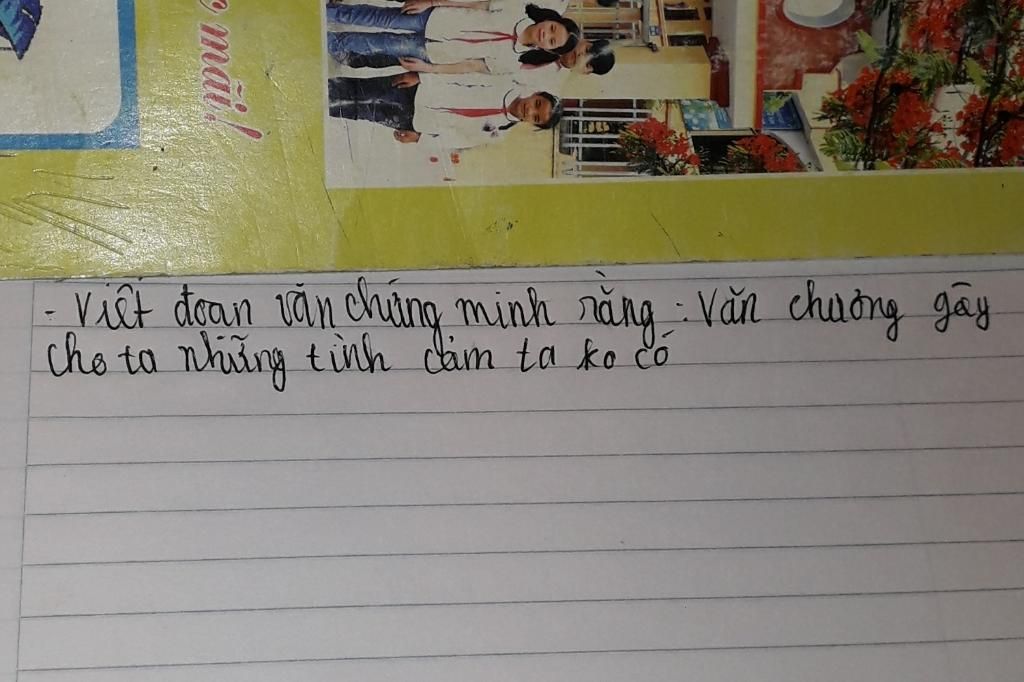 mãi!
- Viết đoạn văn chứng minh rằng : Văn chương gây
cho ta những tình cảm ta ko có